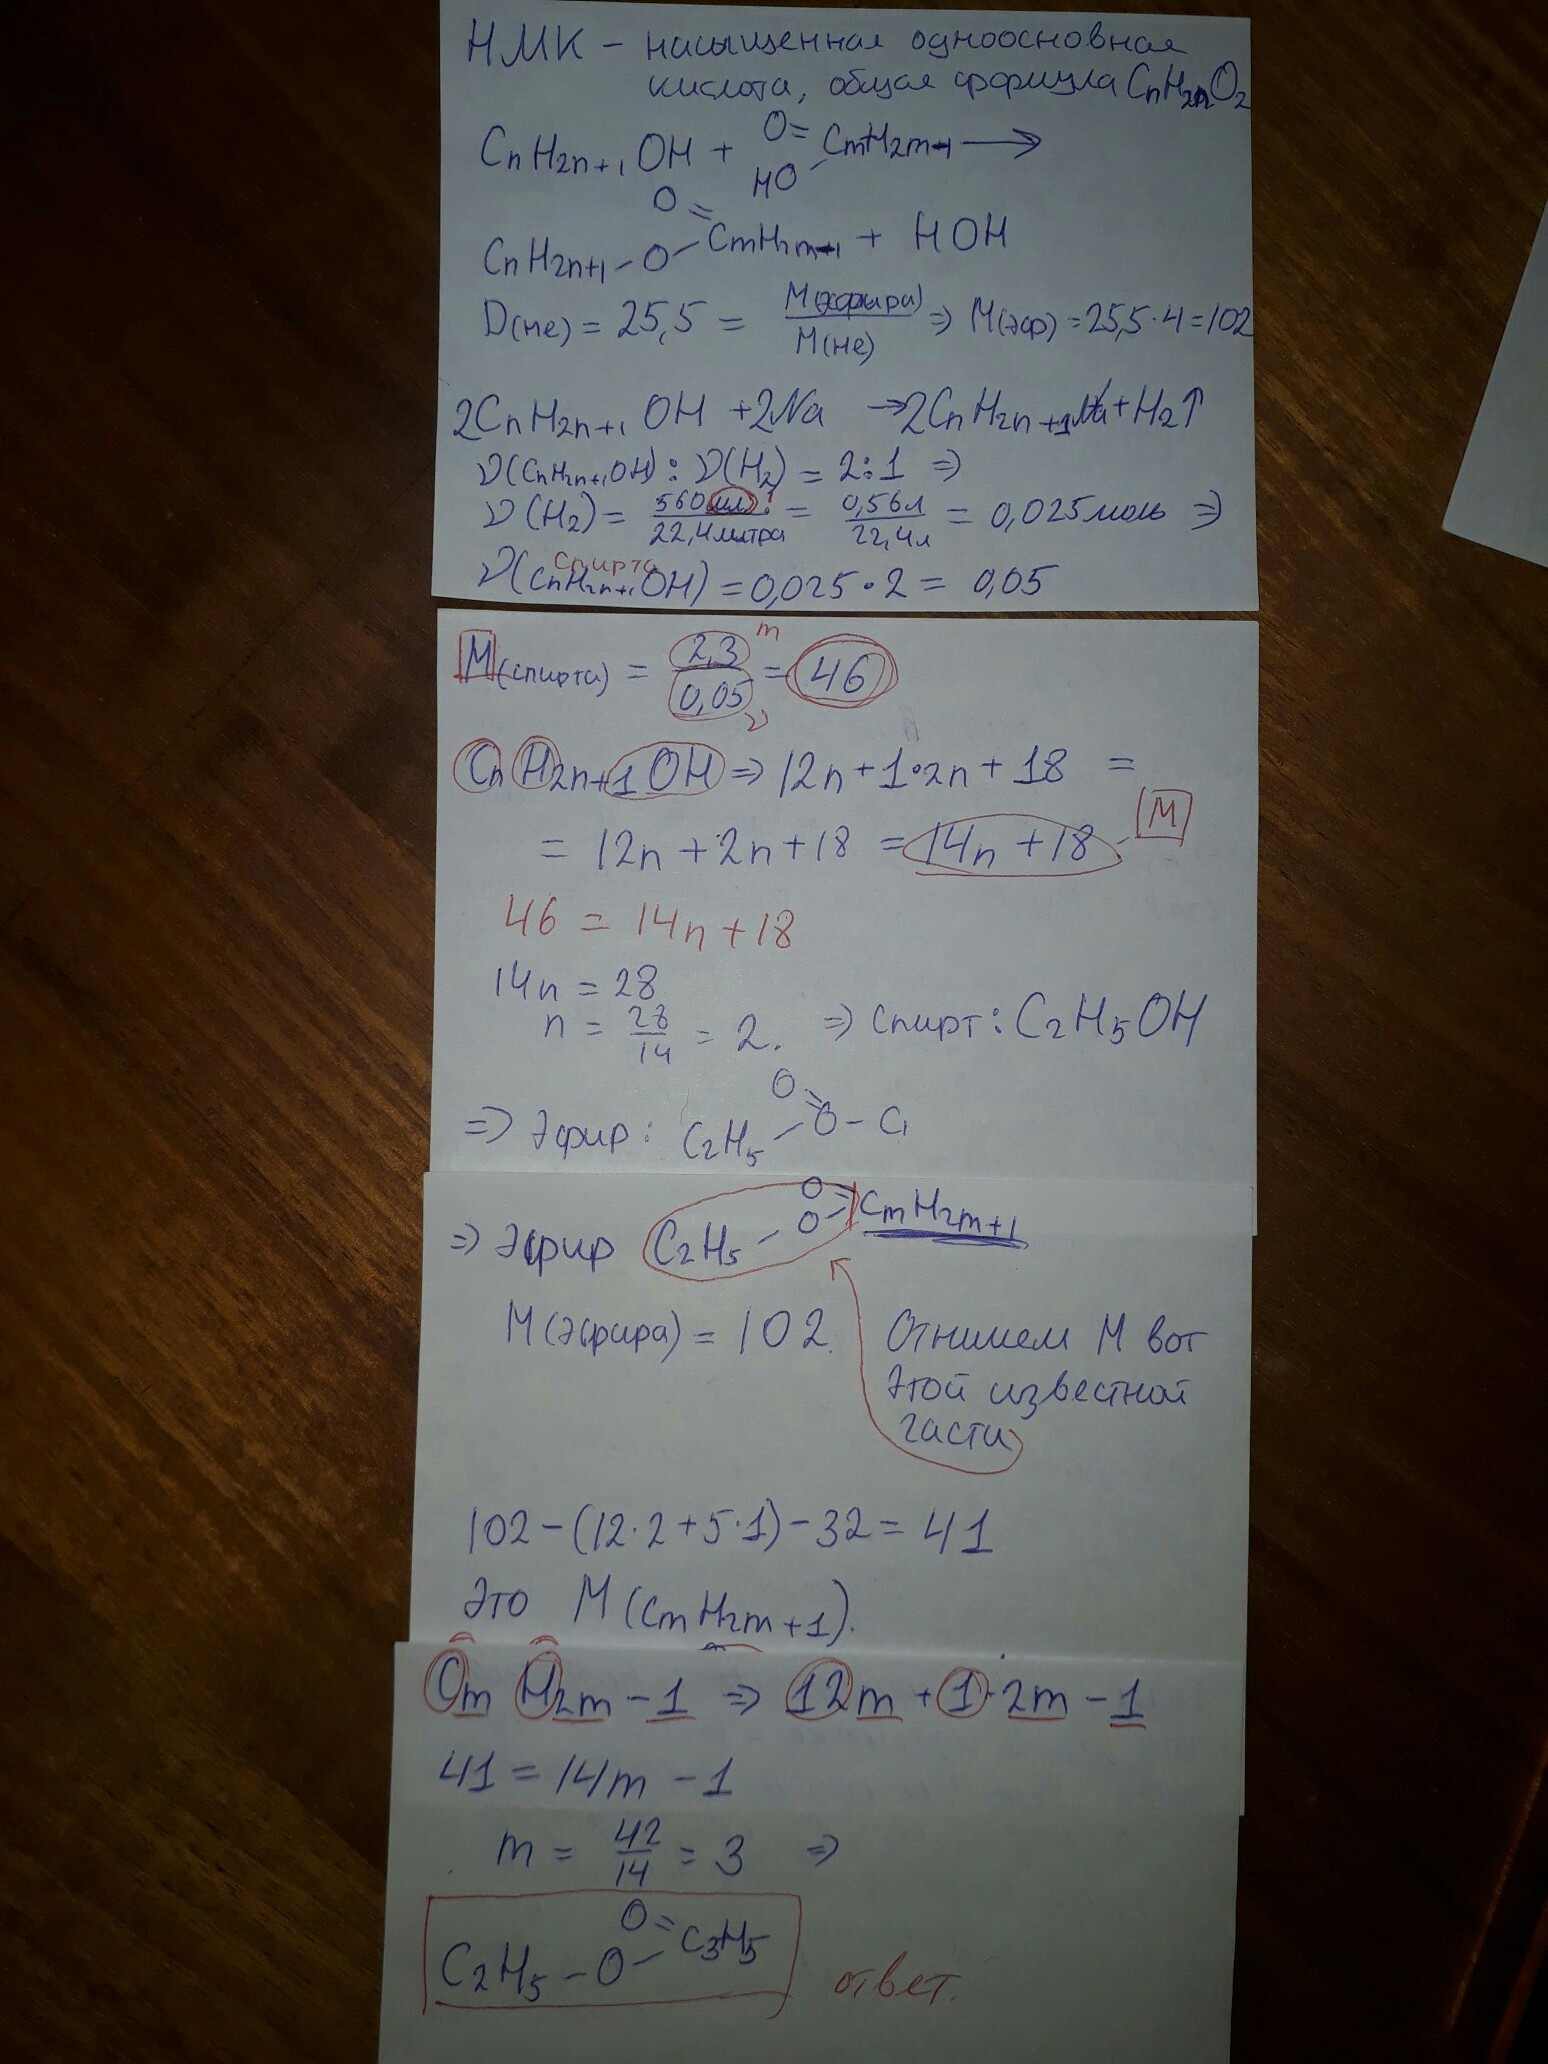 НМК – насыщенная одноосновная
кислота, общая формула CnH2nO2
CnH2n+1OH + O= CmH2m-1 →
HO
O=
CnH2n+1 – O – CmH2m-1 + HOH
D(He) = 25,5 = M(эфира) / M(He) ⇒ M(эф) = 25,5·4=102
2CnH2n+1 OH +2Na → 2CnH2n+1 Na + H2↑
ν(CnH2n+1OH) : ν(H2) = 2:1 ⇒
ν(H2) = 560 мл! / 22,4 литра = 0,56л / 22,4л = 0,025 моль ⇒
спирта
ν(CnH2n+1OH) = 0,025 • 2 = 0,05
M(спирта) = 2,3 m / 0,05 ν = 46
CnH2n+1OH ⇒ 12n + 1•2n + 18 =
= 12n + 2n + 18 = 14n + 18 M
46 = 14n + 18
14n = 28
n = 28/14 = 2. ⇒ Спирт: C2H5OH
⇒ Эфир: C2H5 – O – C
O=
⇒ Эфир C2H5 – O – CmH2m+1
O=
M(эфира) = 102. Отнимем M вот
этой известной
части
102 – (12·2 + 5·1) – 32 = 41
Это M(CmH2m+1).
CmH2m – 1 ⇒ 12m + 1·2m – 1
41 = 14m – 1
m = 42/14 = 3 ⇒
O=
C2H5 – O – C3H5 ответ.